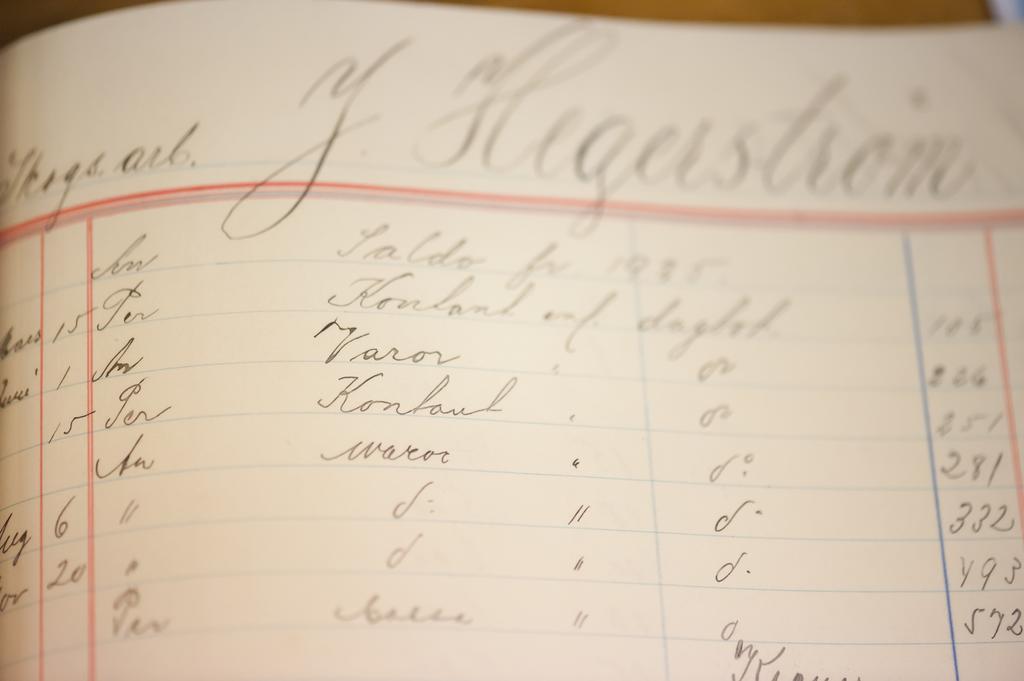 Skogs. arb. J. Hegerström
An Saldo fr 1925.
15 Per Kontant enl. dagbok. 105
1 An Varor " do 226
15 Per Kontant " do 251
An varor " do 281
Aug 6 " do " do 332
20 " d " do 493
Per " 572